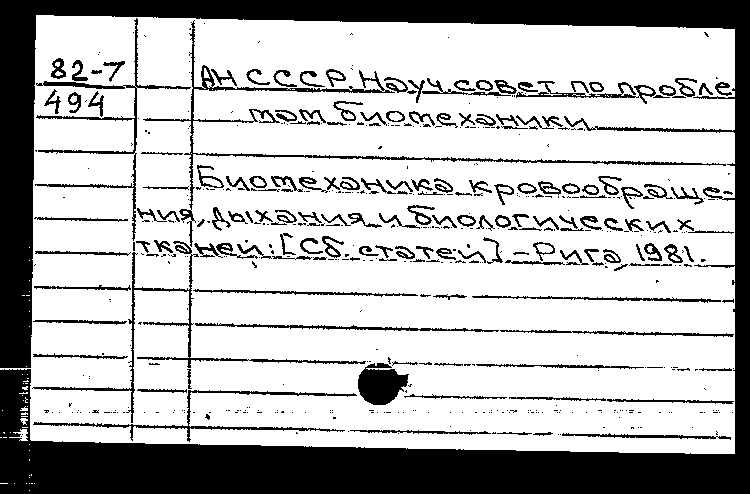 82-7
494
АН СССР. Науч. совет по пробле-
мам биомеханики
Биомеханика кровообраще-
ния, дыхания и биологических
тканей: [Сб. статей] – Рига, 1981.